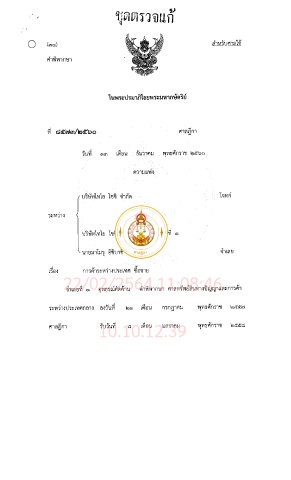 ชุดตรวจแก้
(๓๑)
สำหรับศาลใช้
คำพิพากษา
ในพระปรมาภิไธยพระมหากษัตริย์
ที่ ๘๕๗๓/๒๕๖๐ ศาลฎีกา
วันที่ ๑๓ เดือน ธันวาคม พุทธศักราช ๒๕๖๐
ความแพ่ง
บริษัทโทโย โซชิ จำกัด โจทก์
ระหว่าง
บริษัทโทโย ที่ ๑
จำเลย
เรื่อง การค้าระหว่างประเทศ ซื้อขาย
จำเลยที่ ๑ อุทธรณ์คัดค้าน คำพิพากษา ศาลทรัพย์สินทางปัญญาและการค้า
ระหว่างประเทศกลาง ลงวันที่ ๒๑ เดือน กรกฎาคม พุทธศักราช
ศาลฎีกา รับวันที่ ๘ เดือน มกราคม พุทธศักราช ๒๕๕๘
22/02/2564 11:08:46
10.10.12.39